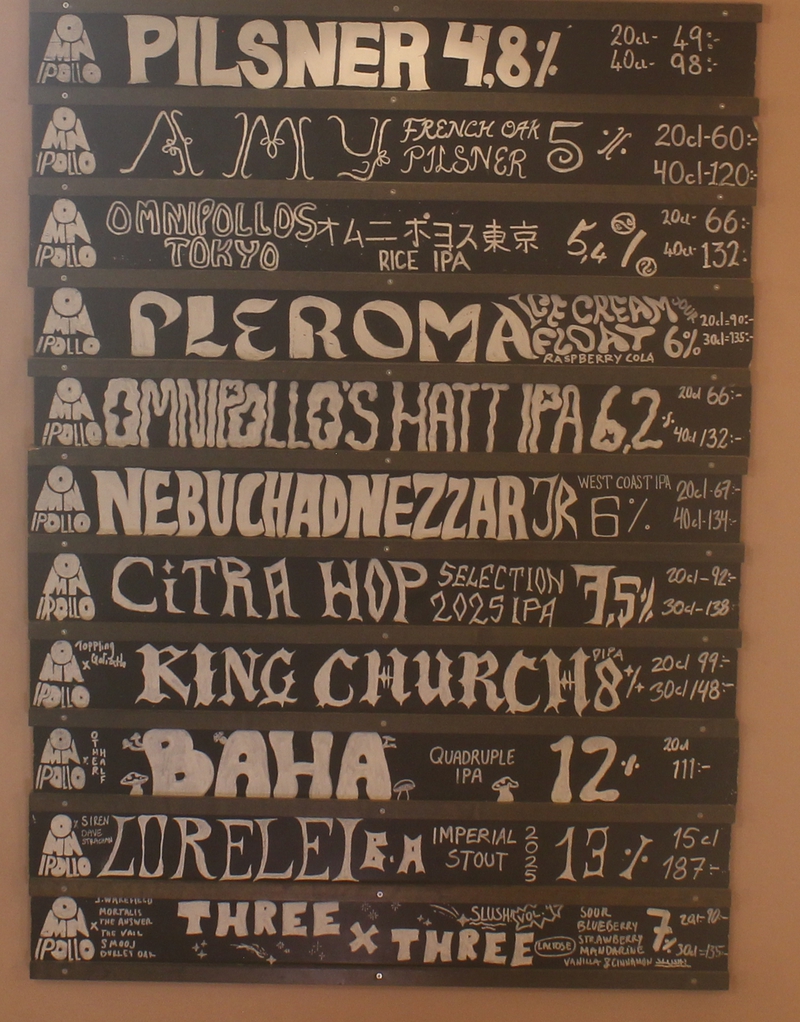 OMNIPOLLO
PILSNER 4,8%
20cl- 49:-
40cl- 98:-
OMNIPOLLO
AMY
FRENCH OAK
PILSNER
5 %
20cl-60:-
40cl-120:-
OMNIPOLLO
OMNIPOLLOS
TOKYO
オムニポヨス東京
RICE IPA
5,4%
20cl- 66:-
40cl- 132:-
OMNIPOLLO
PLEROMA
ICE CREAM SOUR
FLOAT
RASPBERRY COLA
6%
20cl=90:-
30cl=135:-
OMNIPOLLO
OMNIPOLLO'S HATT IPA 6,2%
20cl 66:-
40cl 132:-
OMNIPOLLO
NEBUCHADNEZZAR JR
WEST COAST IPA
6%
20cl-67:-
40cl-134:-
OMNIPOLLO
CiTRA HOP
SELECTION
2025 IPA
7,5%
20cl-92:-
30cl-138:-
OMNIPOLLO
Toppling
x Goliath
KING CHURCH
DIPA
8%
20cl 99:-
30cl 148:-
OMNIPOLLO
x OTHER HALF
BAHA
QUADRUPLE
IPA
12%
20cl
111:-
OMNIPOLLO
SIREN
DAVE
STRACHAN
LORELEI B.A
IMPERIAL
STOUT
2025
13 %
15cl
187:-
OMNIPOLLO
x
J.WAKEFIELD
MORTALIS
THE ANSWER
THE VEIL
SMOOJ
DURLEY OAK
THREE X THREE
SLUSH VOL.
LACTOSE
SOUR
BLUEBERRY
STRAWBERRY
MANDARINE
VANILLA & CINNAMON
7%
20cl-90:-
30cl=135:-